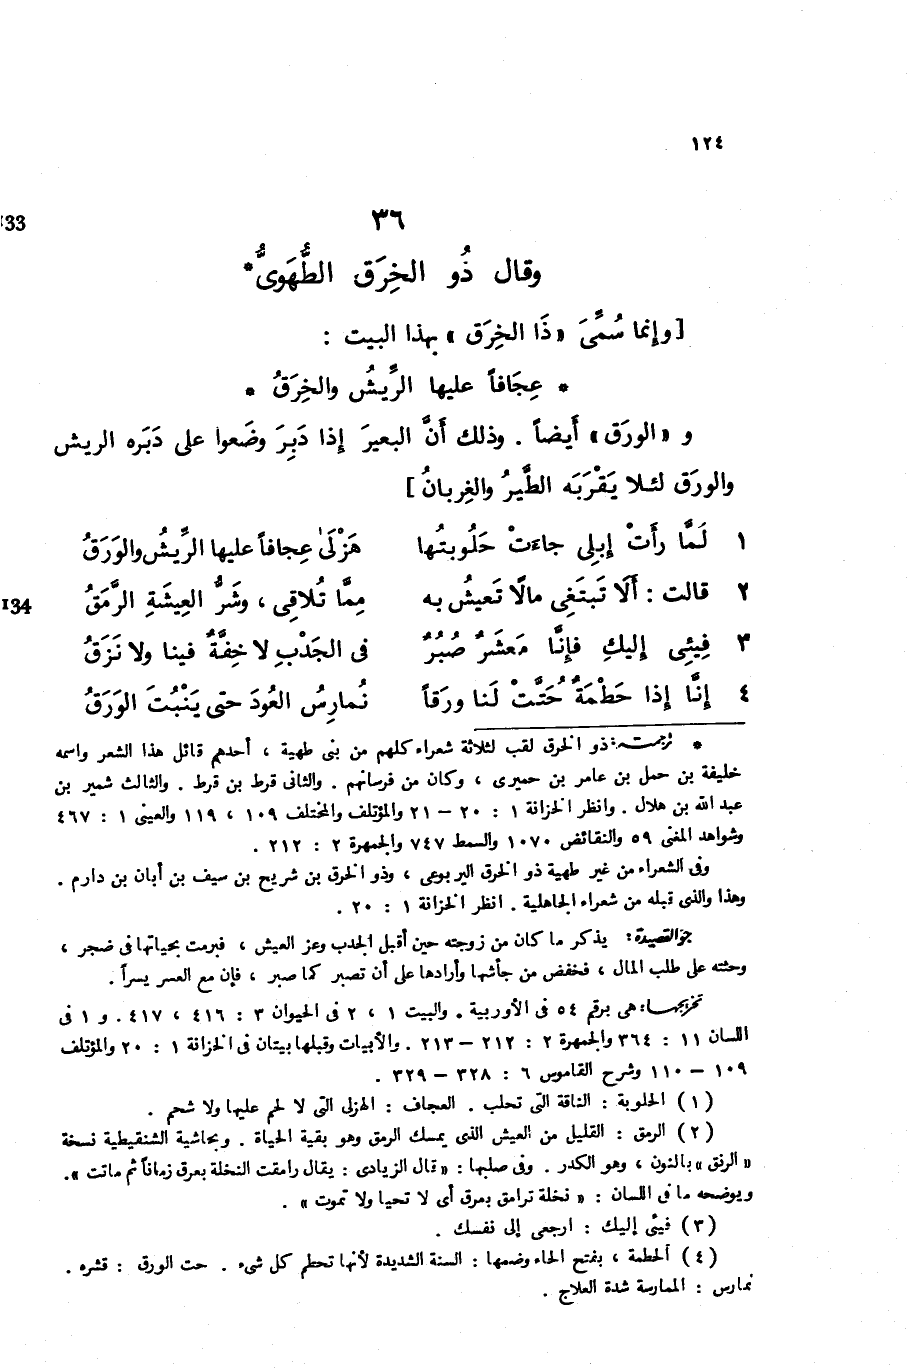 ١٢٤
٣٦
133
وقال ذُو الخِرَق الطُّهَوىُّ*
[وإنما سُمِّىَ «ذَا الخِرَق» بهذا البيت :
* عِجَافاً عليها الرِّيشُ والخِرَقُ *
و «الورَق» أَيضاً . وذلك أَنَّ البعيرَ إذا دَبِرَ وضَعوا على دَبَره الريش
والورَق لئلا يَقْرَبَه الطَّيرُ والغِربانُ]
١ لَمَّا رأَتْ إبلِى جاءَتْ حَلُوبتُها هَزْلَىٰ عِجافاً عليها الرِّيشُ والوَرَقُ
٢ قالت : أَلَا تَبتَغِى مالًا تَعيشُ به مِمَّا تُلاقِى ، وشَرُّ العِيشَةِ الرَّمَقُ
134
٣ فِيئِى إليكِ فإِنَّا مَعشَرٌ صُبُرٌ فى الجَدْبِ لا خِفَّةٌ فينا ولا نَزَقُ
٤ إنَّا إذا حَطْمَةٌ حُتَّتْ لَنا ورَقاً نُمارِسُ العُودَ حتى يَنْبُتَ الوَرَقُ
* ترجمته: ذو الخرق لقب لثلاثة شعراء كلهم من بنى طهية ، أحدهم قائل هذا الشعر واسمه
خليفة بن حمل بن عامر بن حميرى ، وكان من فرسانهم . والثانى قرط بن قرط . والثالث شمير بن
عبد الله بن هلال . وانظر الخزانة ١ : ٢٠ – ٢١ والمؤتلف والمختلف ١٠٩ ، ١١٩ والعينى ١ : ٤٦٧
وشواهد المغنى ٥٩ والنقائض ١٠٧٠ والسمط ٧٤٧ والجمهرة ٢ : ٢١٢ .
وفى الشعراء من غير طهية ذو الخرق اليربوعى ، وذو الخرق بن شريح بن سيف بن أبان بن دارم .
وهذا والذى قبله من شعراء الجاهلية . انظر الخزانة ١ : ٢٠ .
جو القصيدة: يذكر ما كان من زوجته حين أقبل الجدب وعز العيش ، فبرمت بحياتها فى ضجر ،
وحثته على طلب المال ، فخفض من جأشها وأرادها على أن تصبر كما صبر ، فإن مع العسر يسراً .
تخريجها: هى برقم ٥٤ فى الأوربية . والبيت ١ ، ٢ فى الحيوان ٣ : ٤١٦ ، ٤١٧ . و ١ فى
اللسان ١١ : ٣٦٤ والجمهرة ٢ : ٢١٢ – ٢١٣ . والأبيات وقبلها بيتان فى الخزانة ١ : ٢٠ والمؤتلف
١٠٩ – ١١٠ وشرح القاموس ٦ : ٣٢٨ – ٣٢٩ .
(١) الحلوبة : الناقة التى تحلب . العجاف : الهزلى التى لا لحم عليها ولا شحم .
(٢) الرمق : القليل من العيش الذى يمسك الرمق وهو بقية الحياة . وبحاشية الشنقيطية نسخة
«الرنق» بالنون ، وهو الكدر . وفى صلبها : «قال الزيادى : يقال رامقت النخلة بعرق زماناً ثم ماتت».
ويوضحه ما فى اللسان : «نخلة ترامق بعرق أى لا تحيا ولا تموت» .
(٣) فيئى إليك : ارجعى إلى نفسك .
(٤) الحطمة ، بفتح الحاء وضمها : السنة الشديدة لأنها تحطم كل شىء . حت الورق : قشره .
نمارس : الممارسة شدة العلاج .